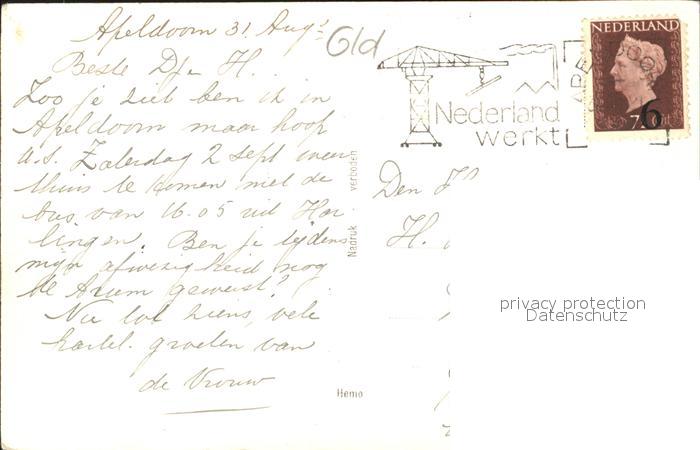 Apeldoorn 31 Aug's
Gld
Beste Dj. H.
Zoo je ziet ben ik in
Apeldoorn maar hoop
a.s. Zaterdag 2 sept weer
thuis te komen met de
bus van 16.05 uit Har-
lingen. Ben je tijdens
mijn afwezigheid nog
te Arum geweest?
Nu tot ziens, vele
hartel. groeten van
de Vrouw
Nadruk verboden
Hemo
Nederland
werkt
NEDERLAND
6
Den
H.
privacy protection
Datenschutz